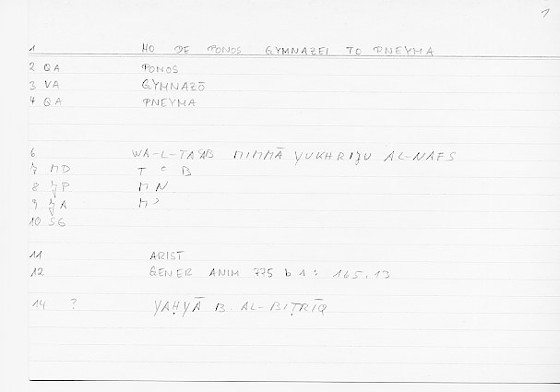 1
1 HO DE PONOS GYMNAZEI TO PNEYMA
2 QA PONOS
3 VA GYMNAZŌ
4 QA PNEYMA
6 WA-L-TAʿAB MIMMĀ YUKHRIJU AL-NAFS
7 MD T ʿ B
8 JP M N
9 JA M ʾ
10 SG
11 ARIST
12 GENER ANIM 775 b 1 : 165.13
14 ? YAḤYĀ B. AL-BIṬRĪQ